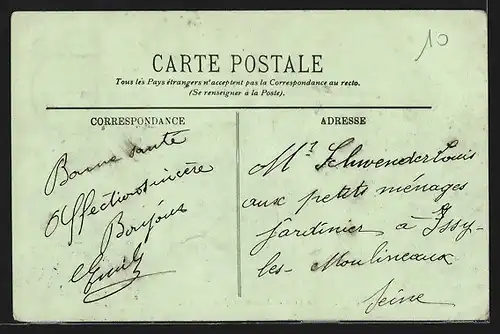 10
CARTE POSTALE
Tous les Pays étrangers n'acceptent pas la Correspondance au recto.
(Se renseigner à la Poste).
CORRESPONDANCE
Bonne santé
Affection sincère
Bonjour
ADRESSE
Mr Schwender Louis
aux petits ménages
Jardinier à Issy-
les-Moulineaux
Seine